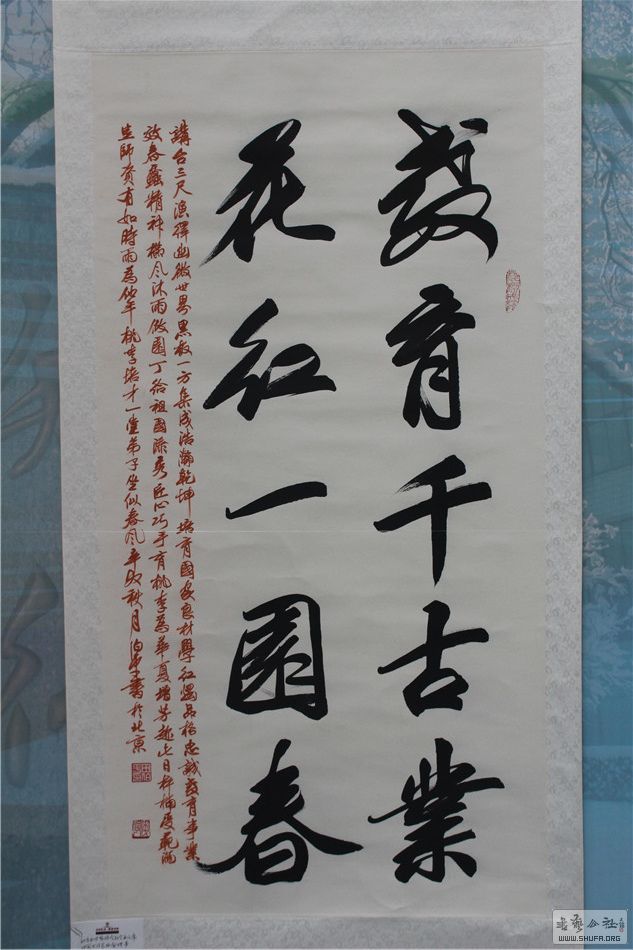 教育千古業
花红一園春
講台三尺演繹幽微世界黑板一方集成浩瀚乾坤培育國家良材學红燭品格忠誠教育事業
效春蠶精神櫛风沐雨做園丁给祖國添秀匠心巧手育桃李為華夏增芳越此日梓楠
生師资有如時雨為仙年桃李培才一堂弟子坐似春风辛卯秋月 書於北京
書藝公社
WWW.SHUFA.ORG